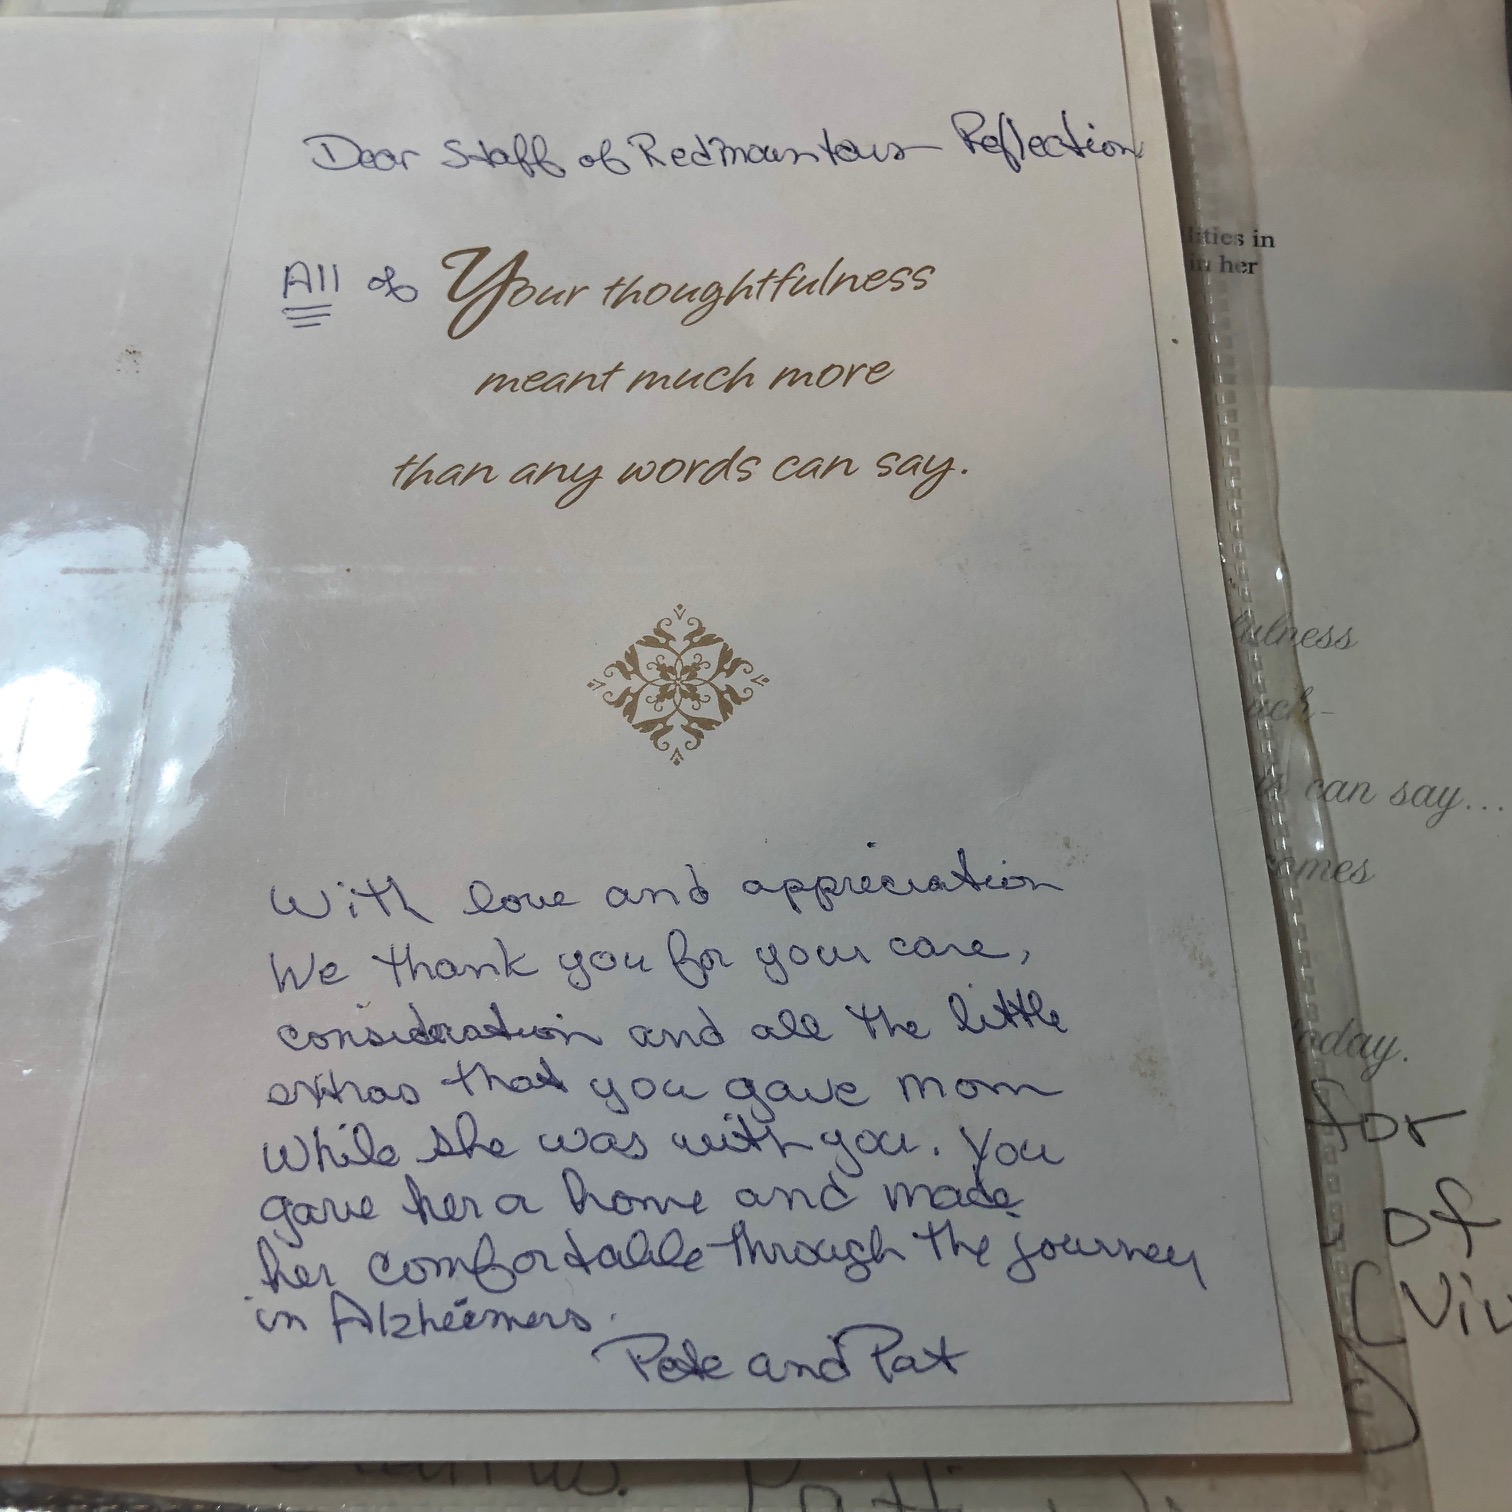 Dear Staff of Redmountain Reflection
All of Your thoughtfulness
meant much more
than any words can say.
With love and appreciation
We thank you for your care,
consideration and all the little
extras that you gave mom
while she was with you. You
gave her a home and made
her comfortable through the journey
in Alzheimers.
Pete and Pat
ities in
in her
ulness
uch-
can say...
omes
oday.
for
of
(Viv